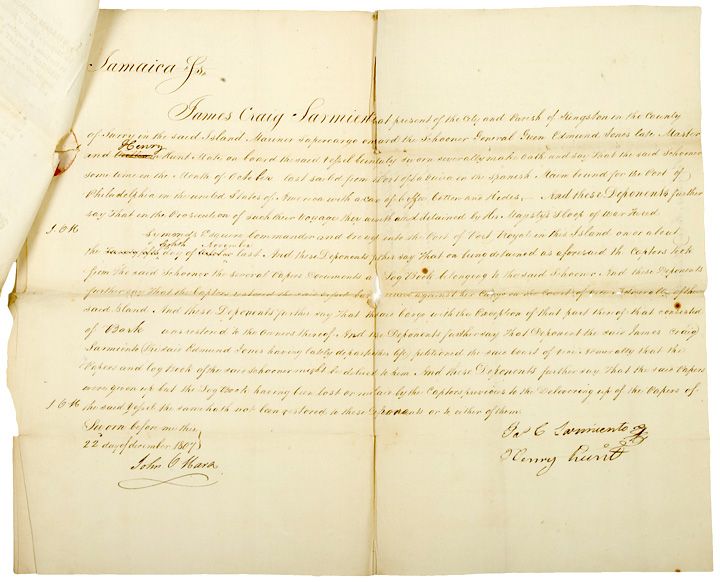 Jamaica Ss.
James Craig Sarmiento at present of the City and Parish of Kingston in the County
of Surry in the said Island Mariner Supercargo onboard the Schooner General Green Edmund Jones late Master
Henry
and Hunt Mate on board the said Vessel being duly sworn severally make oath and say that the said Schooner
some time in the Month of October last sailed from Port of on the Spanish Main bound for the Port of
Philadelphia in the united States of America with a Cargo of Coffee Cotton and Hides. And these Deponents further
say that in the Prosecution of such their Voyage they were met with and detained by His Majesty's Sloop of War
J O H
Symonds Esquire Commander and brought into the Port of Port Royal in this Island on or about
Eighth November
the day of October last And these Deponents further say that on being detained as aforesaid the Captors took
from the said Schooner the several Papers Documents a Log Book belonging to the said Schooner And these Deponents
further say that the Captors restored the said Vessel but against her Cargo in the Court of Vice Admiralty of the
said Island And these Deponents further say that her Cargo with the Exception of that part thereof that consisted
of Bark was restored to the Owners thereof And the Deponents further say that Deponent the said James Craig
Sarmiento the said Edmund Jones having lately departed this life petitioned the said Court of Vice Admiralty that the
Papers and Log Book of the said Schooner might be delivered to him And these Deponents further say that the said Papers
were given up but the Log Book having been lost or mislaid by the Captors previous to the Delivering up of the Papers of
J O H
the said Vessel the same hath not been restored to these Deponents or to either of them
Sworn before me this
22 day of december 1807
Jas C Sarmiento
John O Hara
Henry Hunt